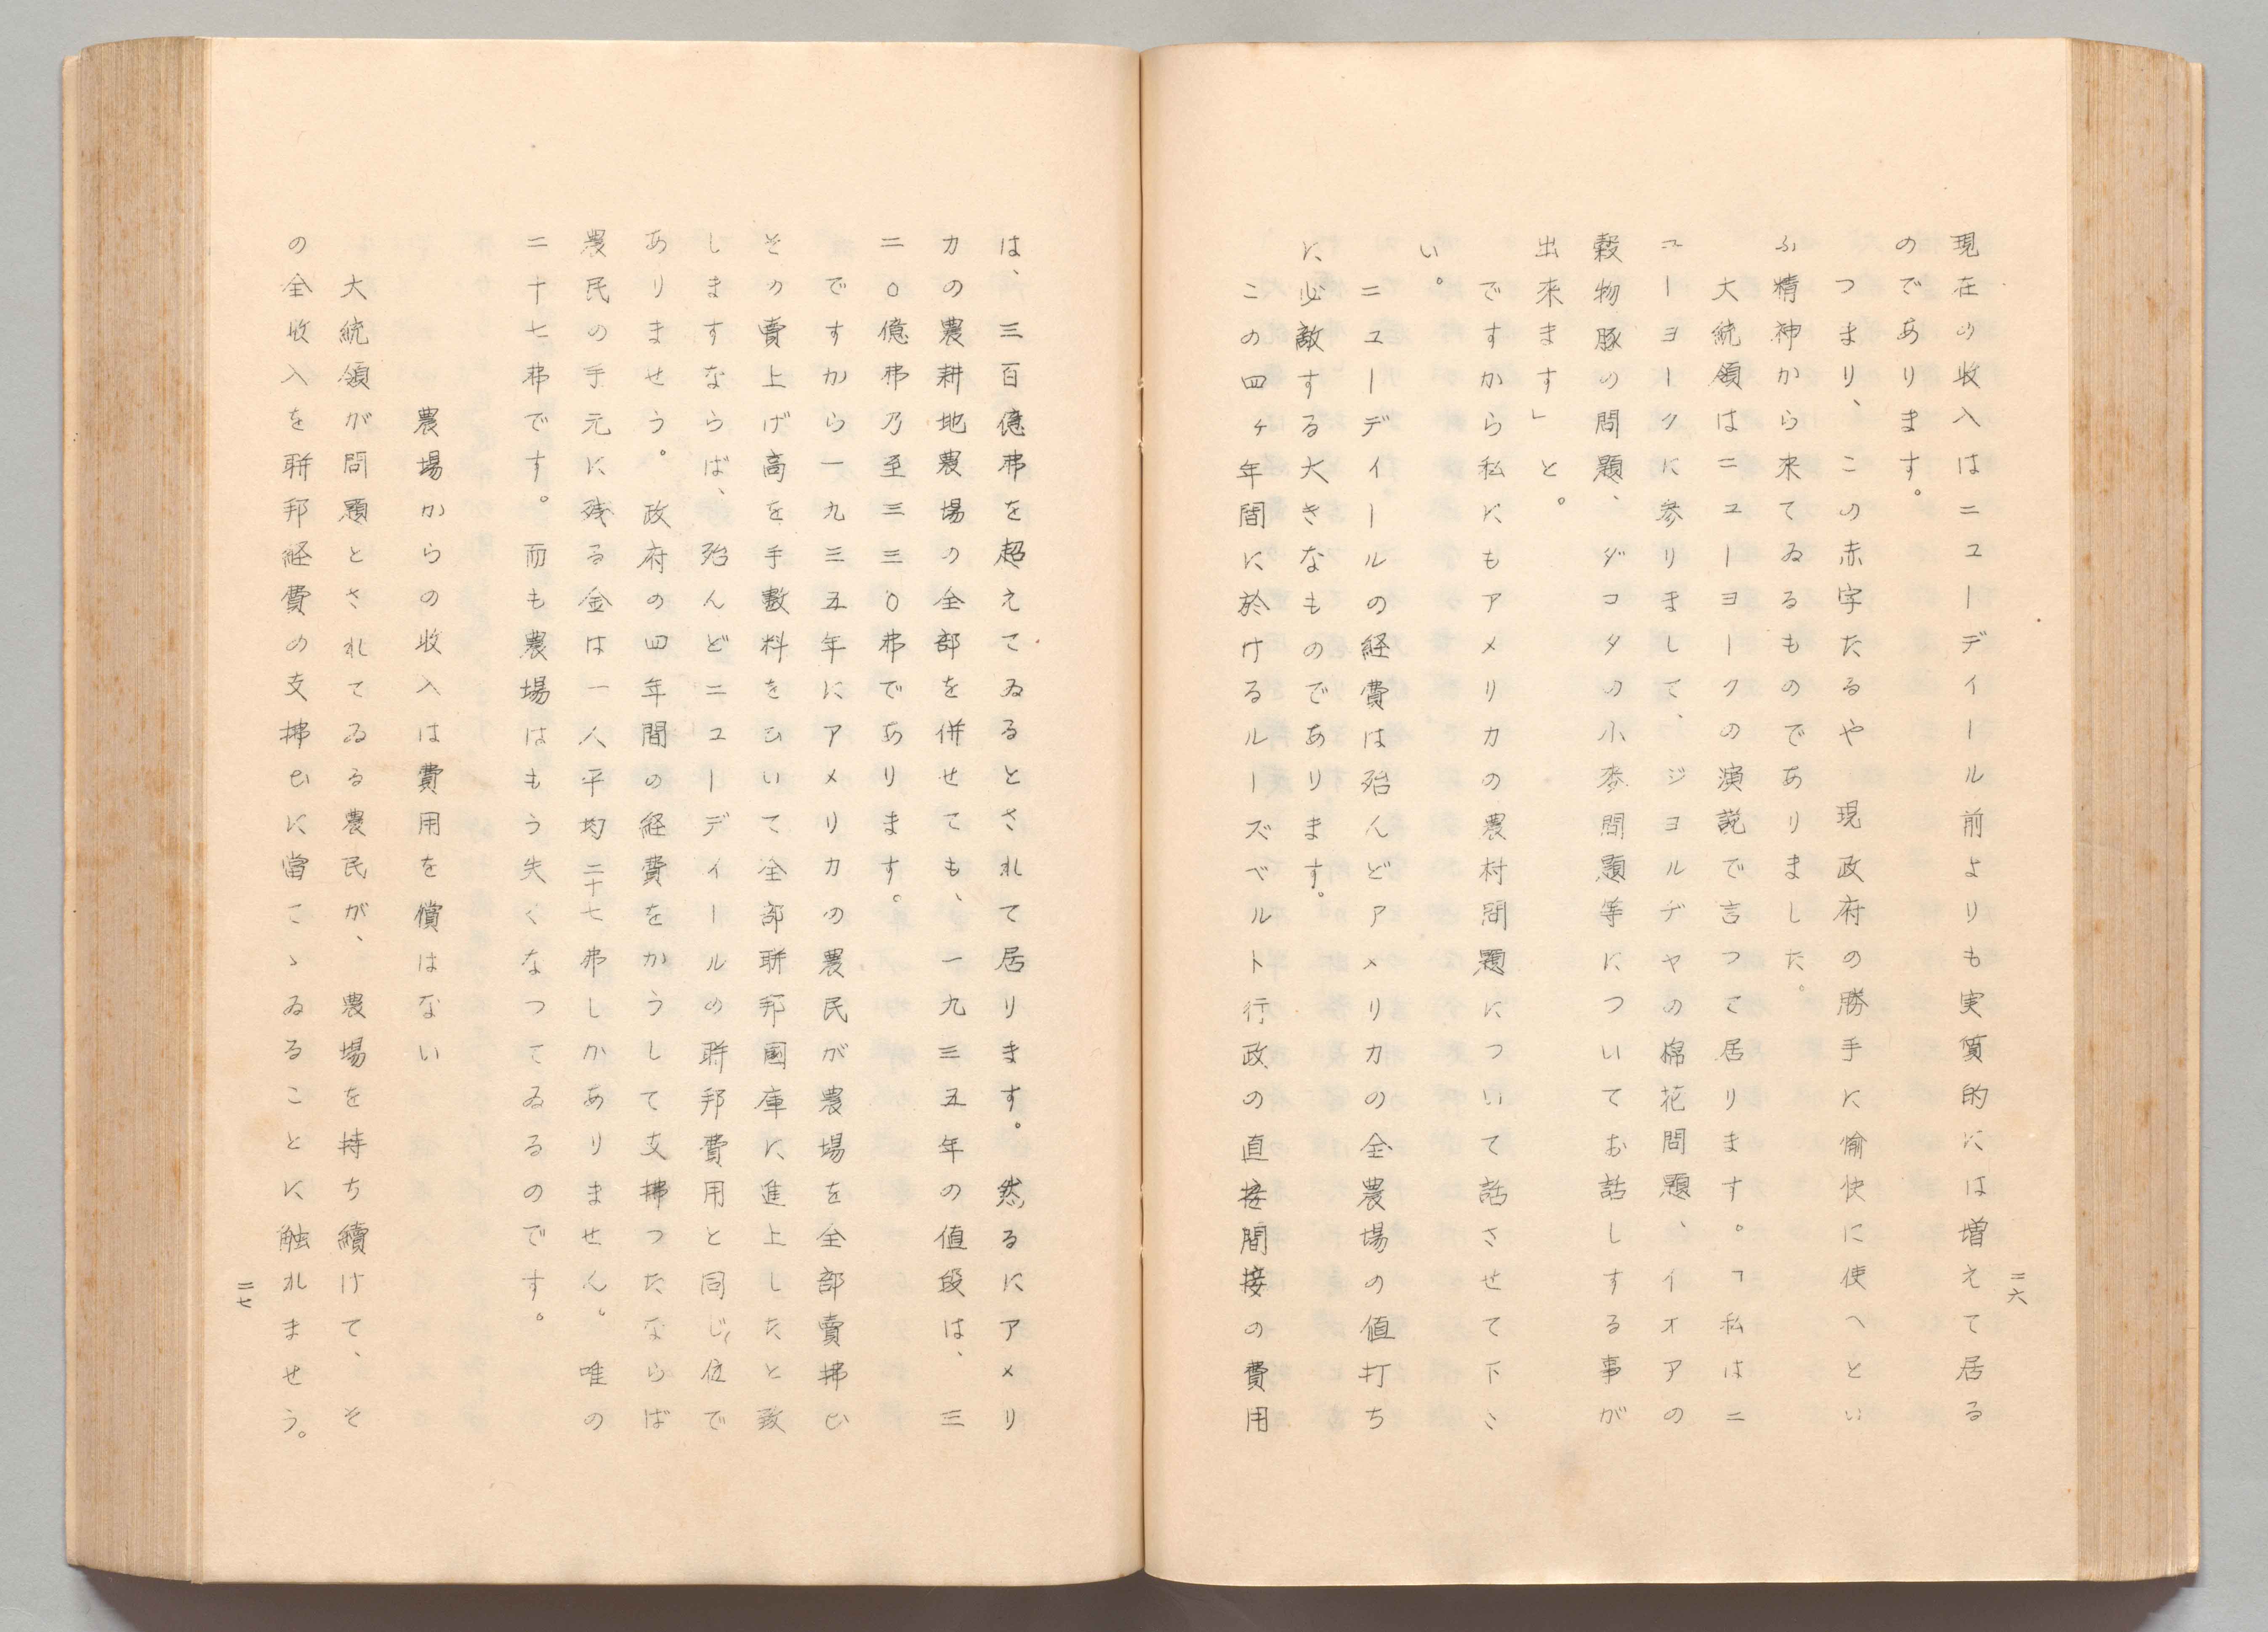 二六
現在の收入はニューデイール前よりも実質的には増えて居る
のであります。
つまり、この赤字たるや 現政府の勝手に愉快に使へとい
ふ精神から来てゐるものでありました。
大統領はニューヨークの演説で言つて居ります。「私はニ
ューヨークに参りまして、ジヨルヂヤの棉花問題、イオアの
穀物豚の問題、ダコタの小麥問題等についてお話しする事が
出来ます」と。
ですから私にもアメリカの農村問題について話させて下さ
い。
ニューデイールの経費は殆んどアメリカの全農場の値打ち
に必敵する大きなものであります。
この四ヶ年間に於けるルーズベルト行政の直接間接の費用
は、三百億弗を超えてゐるとされて居ります。然るにアメリ
カの農耕地農場の全部を併せても、一九三五年の値段は、三
二〇億弗乃至三三〇弗であります。
ですから一九三五年にアメリカの農民が農場を全部賣拂ひ
その賣上げ高を手數料をひいて全部聯邦國庫に進上したと致
しますならば、殆んどニューデイールの聯邦費用と同じ位で
ありませう。政府の四年間の経費をかうして支拂つたならば
農民の手元に残る金は一人平均二十七弗しかありません。唯の
二十七弗です。而も農場はもう失くなつてゐるのです。
農場からの收入は費用を償はない
大統領が問題とされてゐる農民が、農場を持ち續けて、そ
の全收入を聯邦経費の支拂ひに當てゝゐることに触れませう。
二七